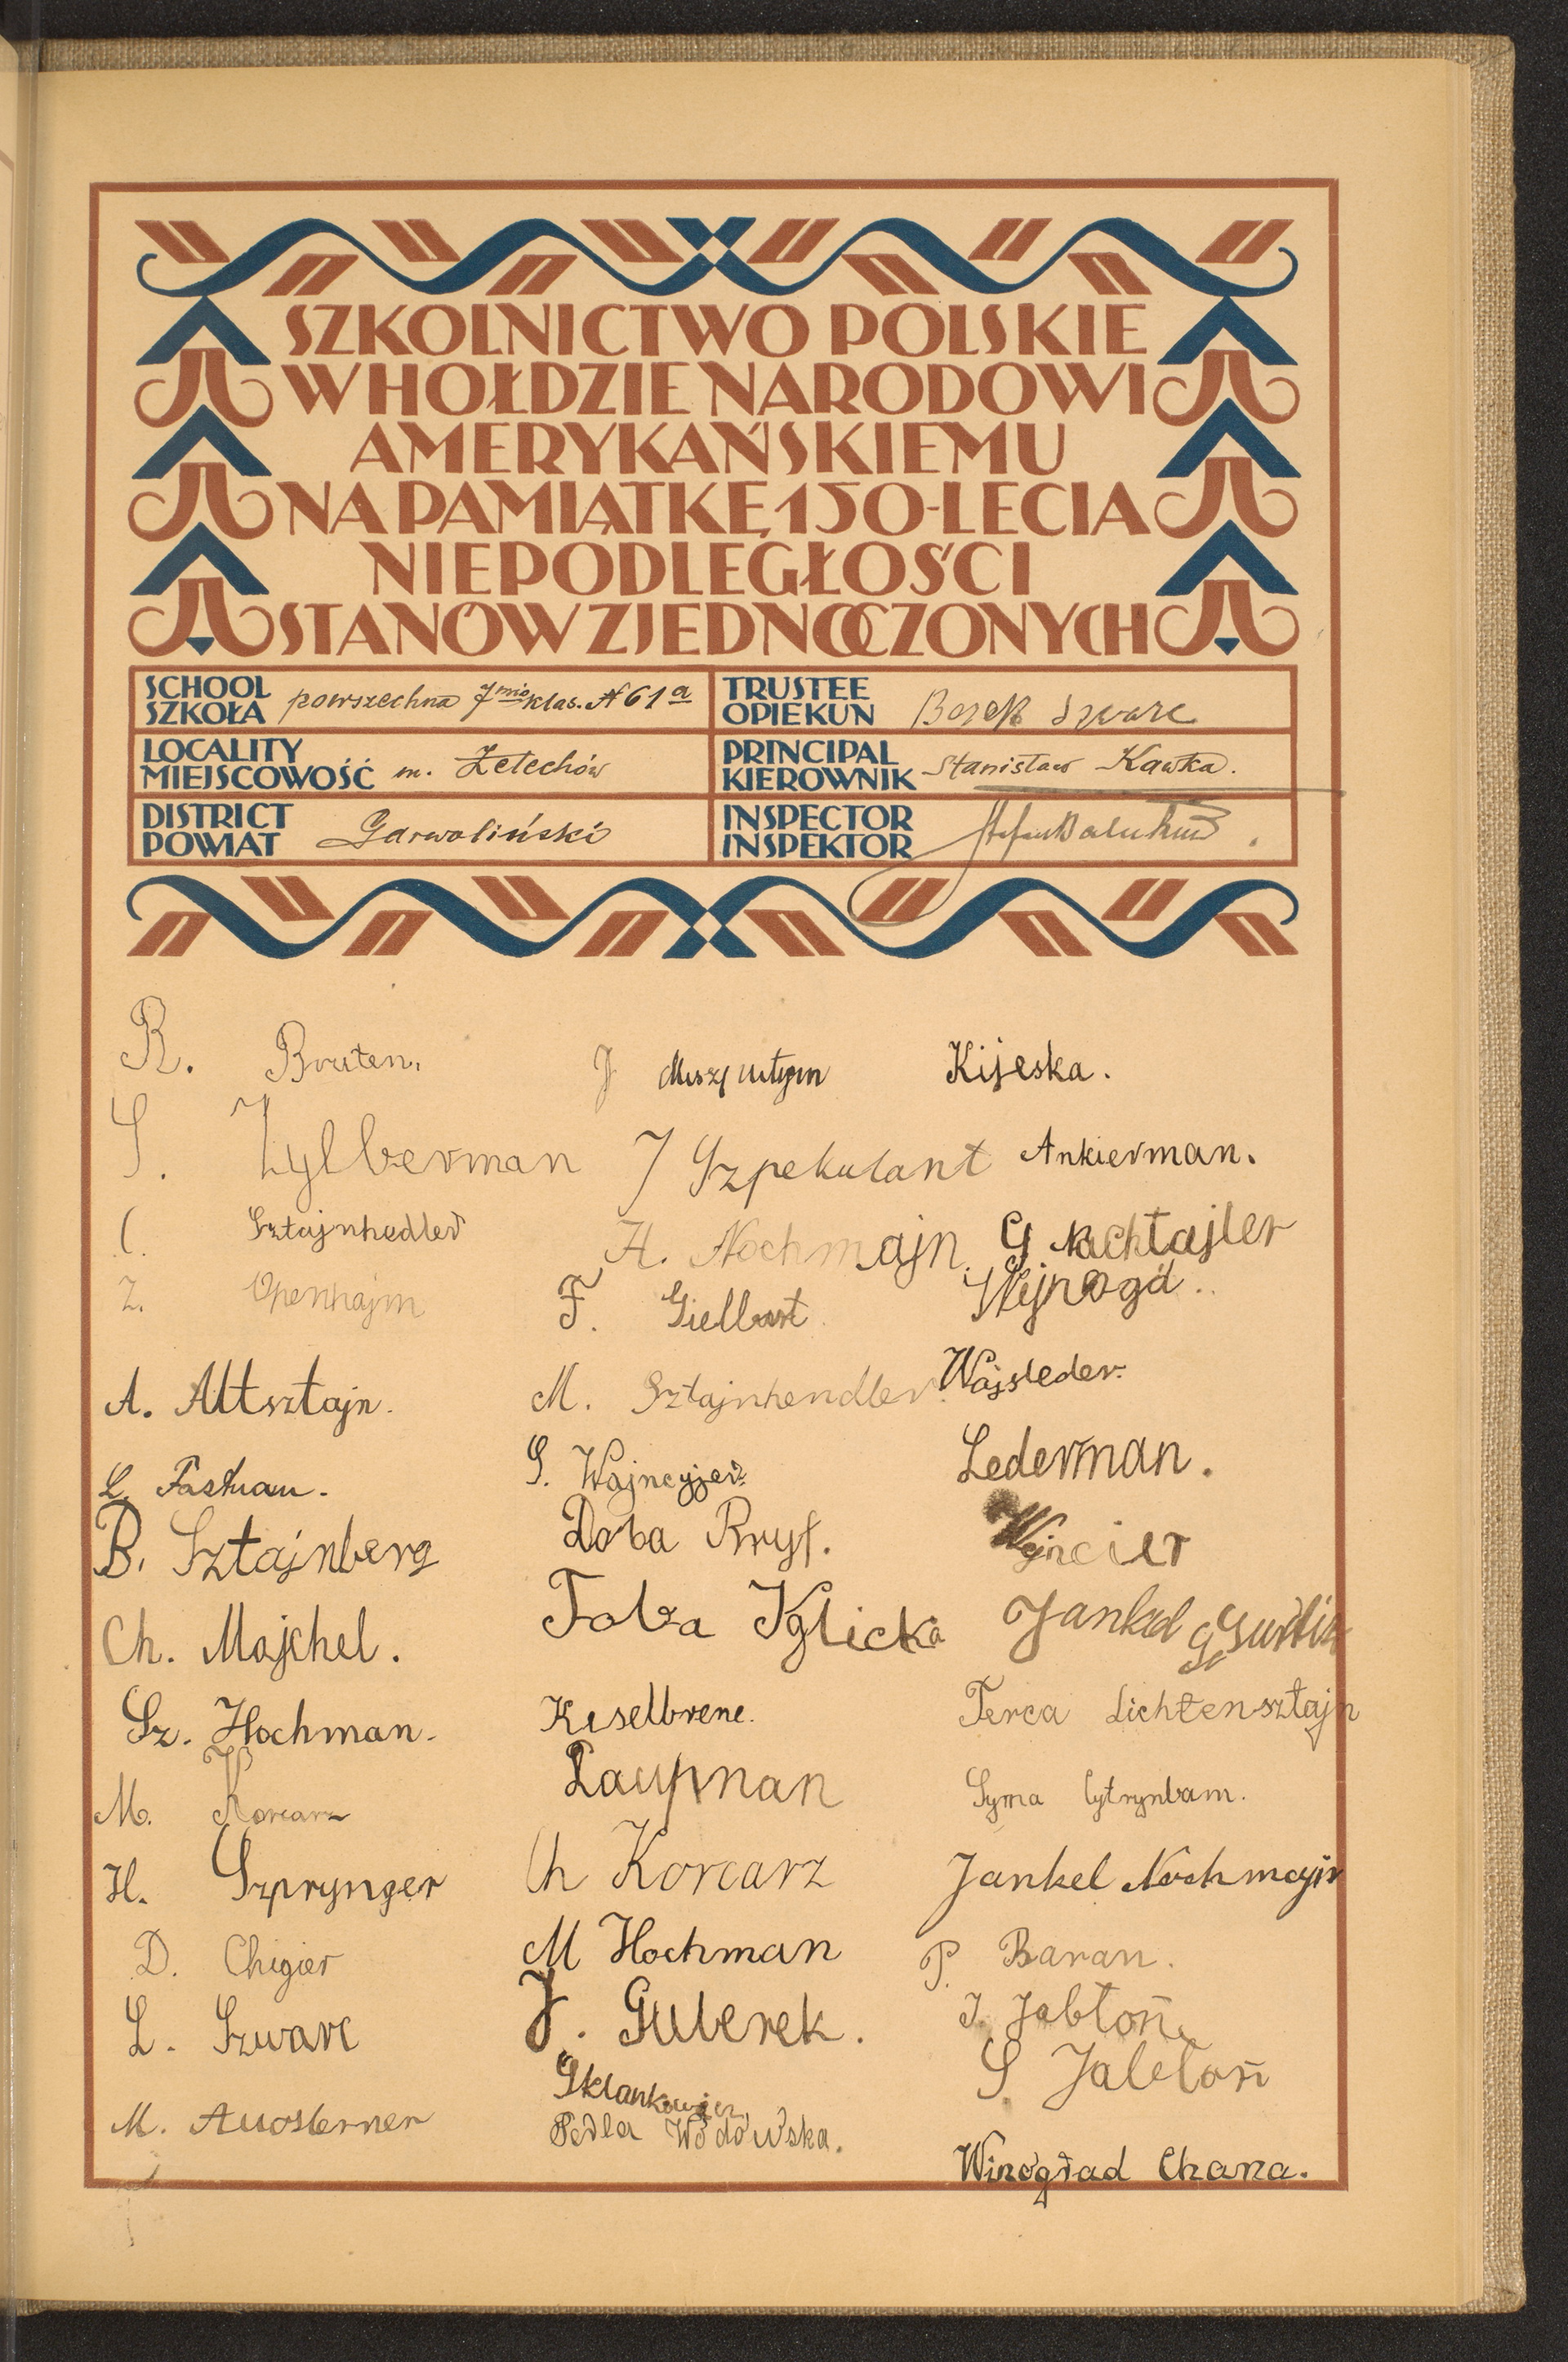 SZKOLNICTWO POLSKIE
W HOŁDZIE NARODOWI
AMERYKAŃSKIEMU
NA PAMIĄTKĘ 150-LECIA
NIEPODLEGŁOŚCI
STANÓW ZJEDNOCZONYCH
SCHOOL
SZKOŁA
powszechna 7mio klas. № 61a
TRUSTEE
OPIEKUN
Berek Szwarc
LOCALITY
MIEJSCOWOŚĆ
m. Żelechów
PRINCIPAL
KIEROWNIK
Stanisław Kawka.
DISTRICT
POWIAT
Garwoliński
INSPECTOR
INSPEKTOR
R. Bruten.
S. Zylberman
Sztajnhedler
Z. Openhajm
A. Altsztajn.
L. Fastman.
B. Sztajnberg
Ch. Majchel.
Sz. Hochman.
M. Korcarz
H. Szprynger
D. Chigier
L. Szwarc
M.
J
J Szpekulant
H. Nochmajn.
F. Gielbart.
M. Sztajnhendler.
S.
Doba Bryf.
Toba Iglicka
Kiselbrene.
Laupman
Ch Korcarz
M Hochman
J. Guberek.
Sklankowjer
Pedla Wodowska.
Kijeska.
Ankierman.
G Nachtajler
Wajsleder.
Lederman.
Wajncier
Jankel
Terca Lichtensztajn
Syma Cytrynbam.
Jankel Nochmajn
P. Baran.
I. Jabłoń
S. Jabłoń
Winograd Chana.